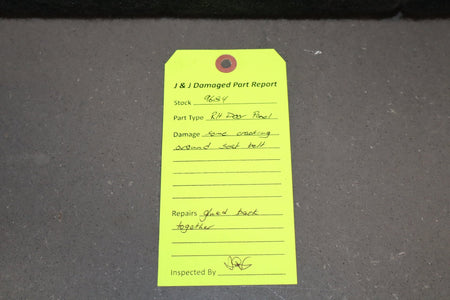 J & J Damaged Part Report
Stock 9684
Part Type RH Door Panel
Damage some cracking
around seat belt
Repairs glued back
together
Inspected By